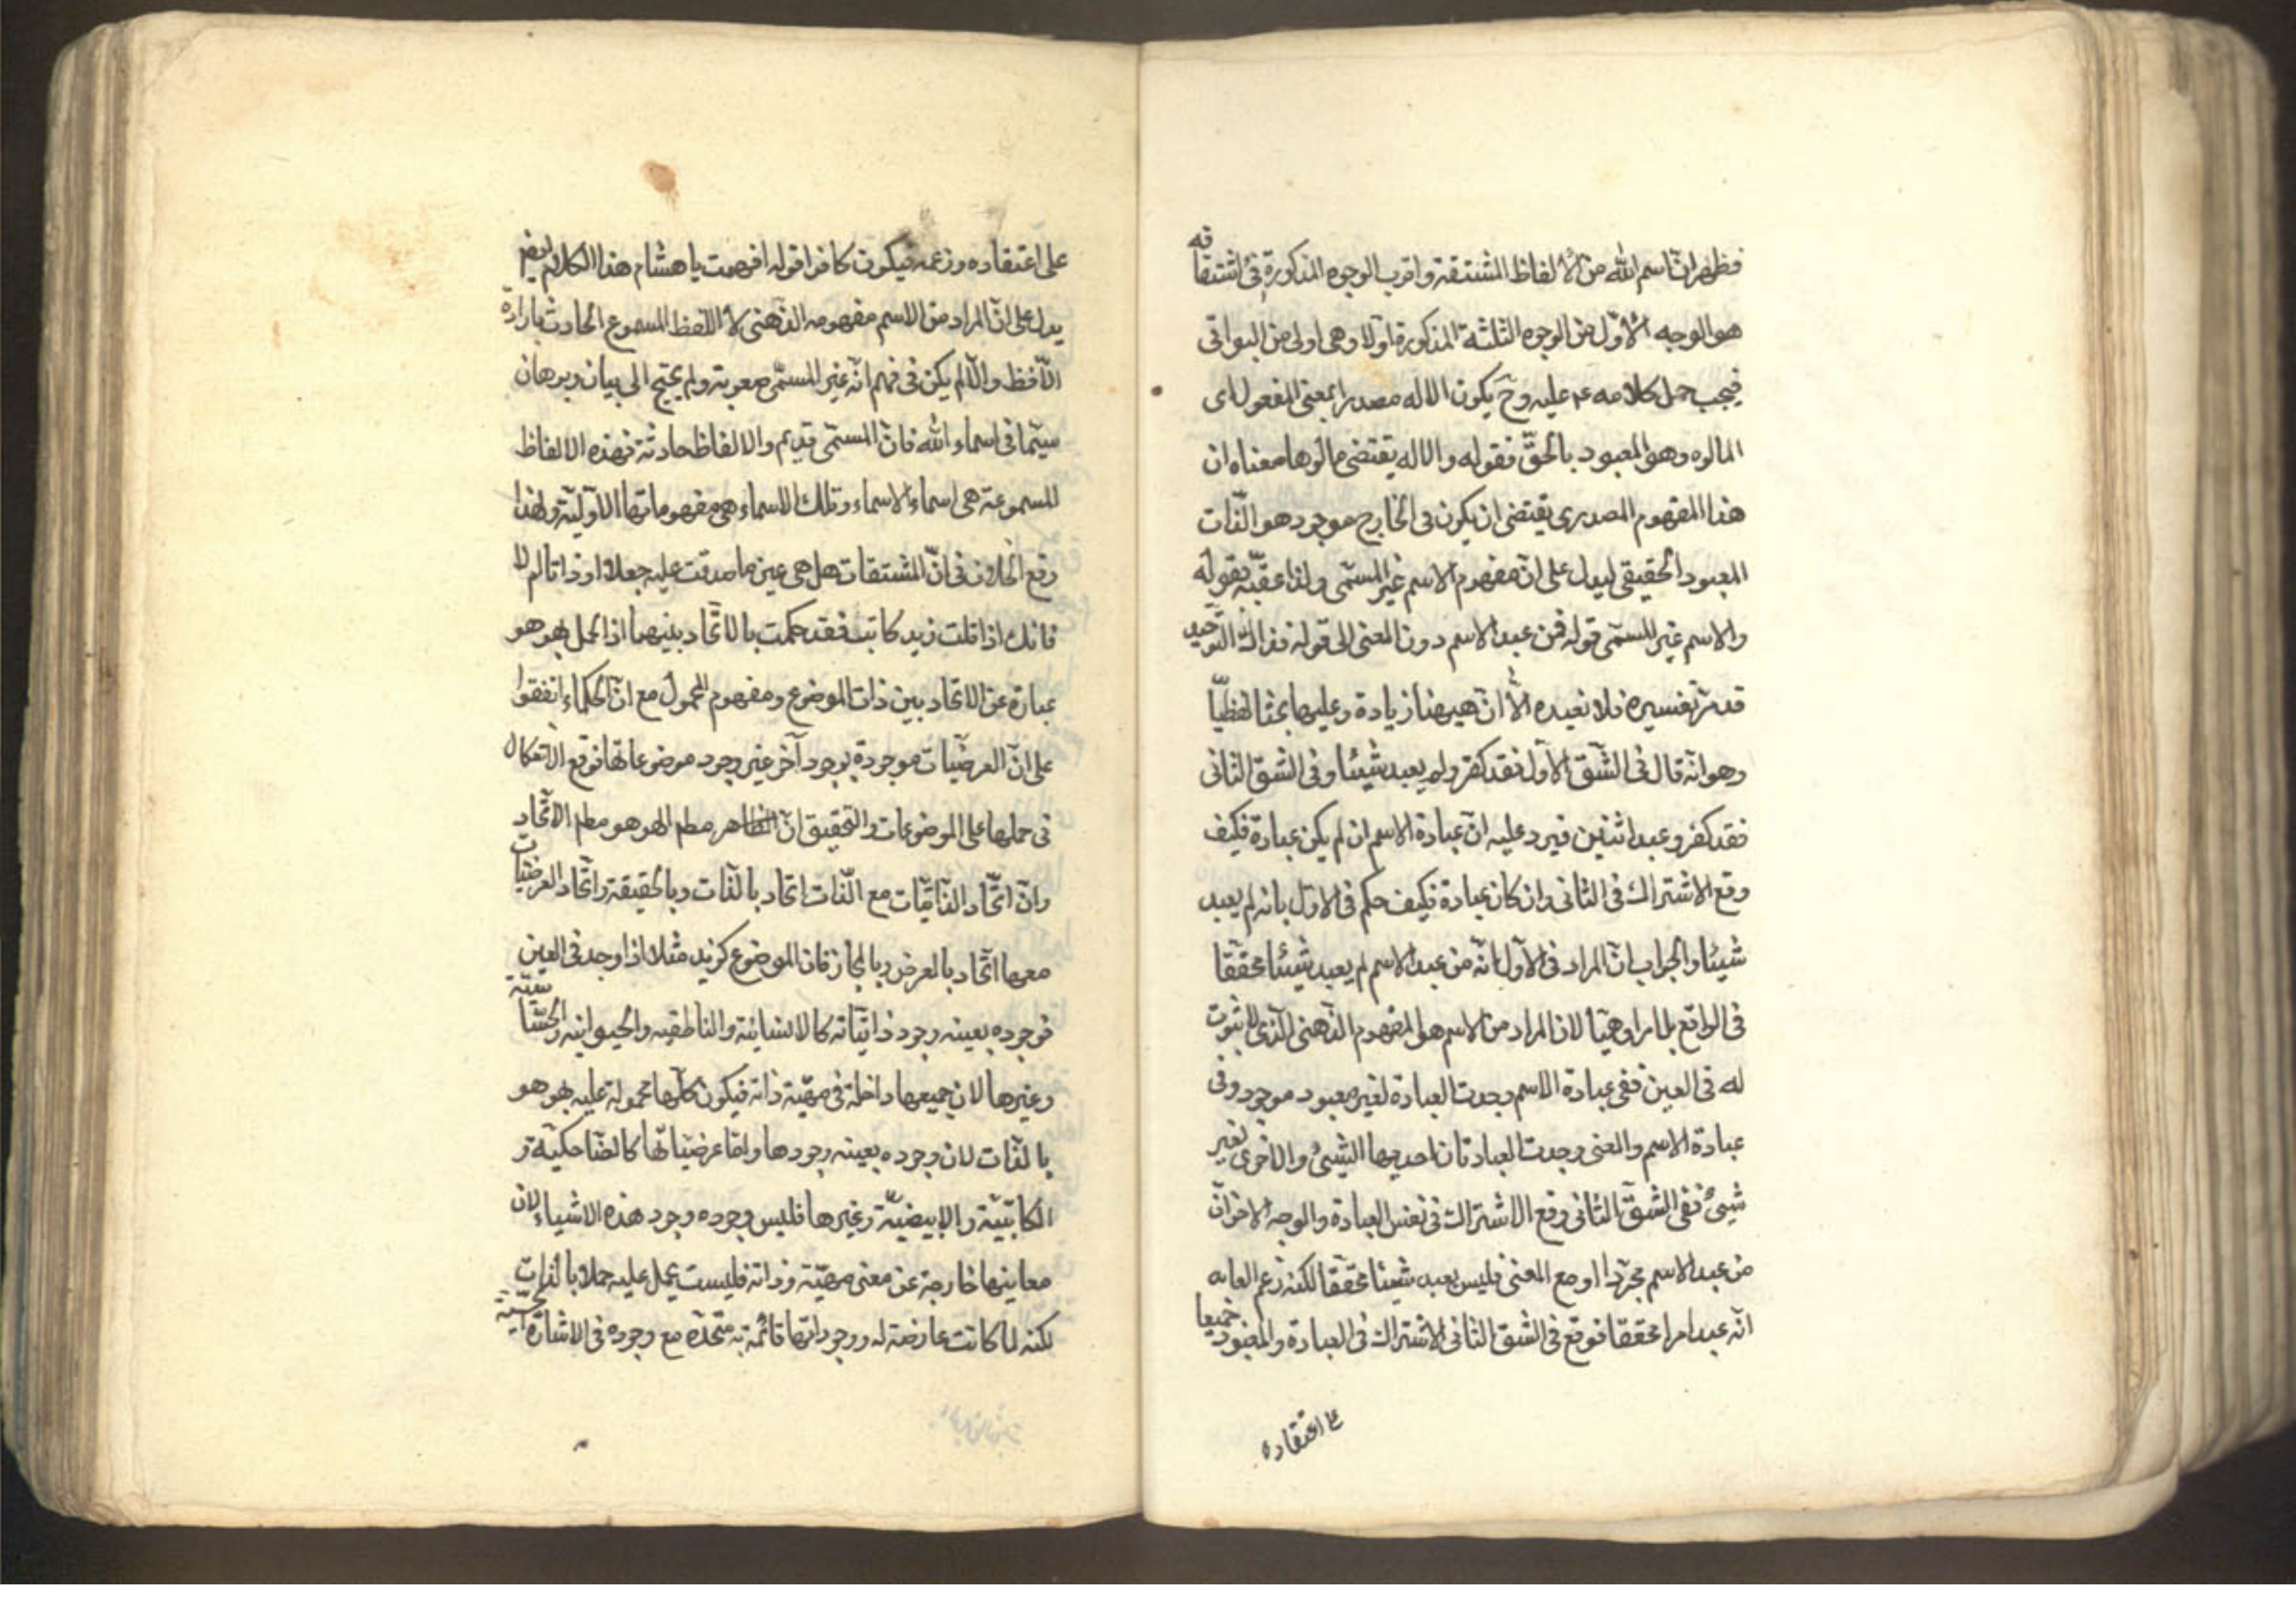 فظهر ان اسم الله من الالفاظ المشتقة واقرب الوجوه المذكورة فى اشتقاقه
هو الوجه الاول من الوجوه الثلثة المذكورة اولا وهى اولى من البواقى
فيجب حمل كلامه ع عليه وح يكون الاله مصدرا بمعنى المفعول اى
المالوه وهو المعبود بالحق فقوله والاله يقتضى مالوها معناه ان
هذا المفهوم المصدرى يقتضى ان يكون فى الخارج موجود هو الذات
المعبود الحقيقى ليدل على ان مفهوم الاسم غير المسمى ولذا عقبه بقوله
والاسم غير المسمى قوله فمن عبد الاسم دون المعنى الى قوله فذاك التوحيد
قد مر تفسيره فلا نعيده الا ان ههنا زيادة وعليها بحثا لفظيا
وهو انه قال فى الشق الاول فقد كفر ولم يعبد شيئا وفى الشق الثانى
فقد كفر وعبد اثنين فيرد عليه ان عبادة الاسم ان لم يكن عبادة فكيف
وقع الاشتراك فى الثانى وان كان عبادة فكيف حكم فى الاول بانه لم يعبد
شيئا والجواب ان المراد فى الاول انه من عبد الاسم لم يعبد شيئا محققا
فى الواقع بل امرا وهميا لان المراد من الاسم هو المفهوم الذهنى الذى لا ثبوت
له فى العين ففى عبادة الاسم وجدت العبادة لغير معبود موجود وفى
عبادة الاسم والمعنى وجدت العبادتان احديهما لشيئ والاخرى لغير
شيئ ففى الشق الثانى وقع الاشتراك فى نفس العبادة والوجه الاخر ان
من عبد الاسم مجردا او مع المعنى فليس يعبد شيئا محققا لكنه زعم العابد
انه عبد امرا محققا فوقع فى الشق الثانى الاشتراك فى العبادة والمعبود جميعا
على اعتقاده
على اعتقاده وزعمه فيكون كافرا قوله افهمت يا هشام هذا الكلام ايضا
يدل على ان المراد من الاسم مفهومه الذهنى لا اللفظ المسموع الحادث بارادة
اللافظ والا لم يكن فى فهم انه غير المسمى صعوبة ولم يحتج الى بيان وبرهان
سيما فى اسماء الله فان المسمى قديم والالفاظ حادثة فهذه الالفاظ
المسموعة هى اسماء الاسماء وتلك الاسماء هى مفهوماتها الاولية ولهذا
وقع الخلاف فى ان المشتقات هل هى عين ما صدقت عليه جعلا او ذاتا ام لا
فانك اذا قلت زيد كاتب فقد حكمت بالاتحاد بينهما اذ الحمل بهو هو
عبارة عن الاتحاد بين ذات الموضوع ومفهوم المحمول مع ان الحكماء اتفقوا
على ان العرضيات موجودة بوجود آخر غير وجود موضوعاتها فوقع الاشكال
فى حملها على الموضوعات والتحقيق ان الظاهر مطم الهو هو مطم الاتحاد
وان اتحاد الذاتيات مع الذات اتحاد بالذات وبالحقيقة واتحاد العرضيات
معها اتحاد بالعرض وبالمجاز فان الموضوع كزيد مثلا اذا وجد فى العين
فوجوده بعينه وجود ذاتياته كالانسانية والناطقيه والحيوانيه والحساسية
وغيرها لان جميعها داخلة فى مهية ذاته فيكون كلها محمولة عليه بهو هو
بالذات لان وجوده بعينه وجودها واما عرضياتها كالضاحكية و
الكاتبية والابيضية وغيرها فليس وجوده وجود هذه الاشياء لان
معانيها خارجة عن معنى مهية وذاته فليست يحمل عليه حملا بالذات
لكنه لما كانت عارضة له ووجوداتها قائمة به متحدة مع وجوده فى الاشارة الحسية